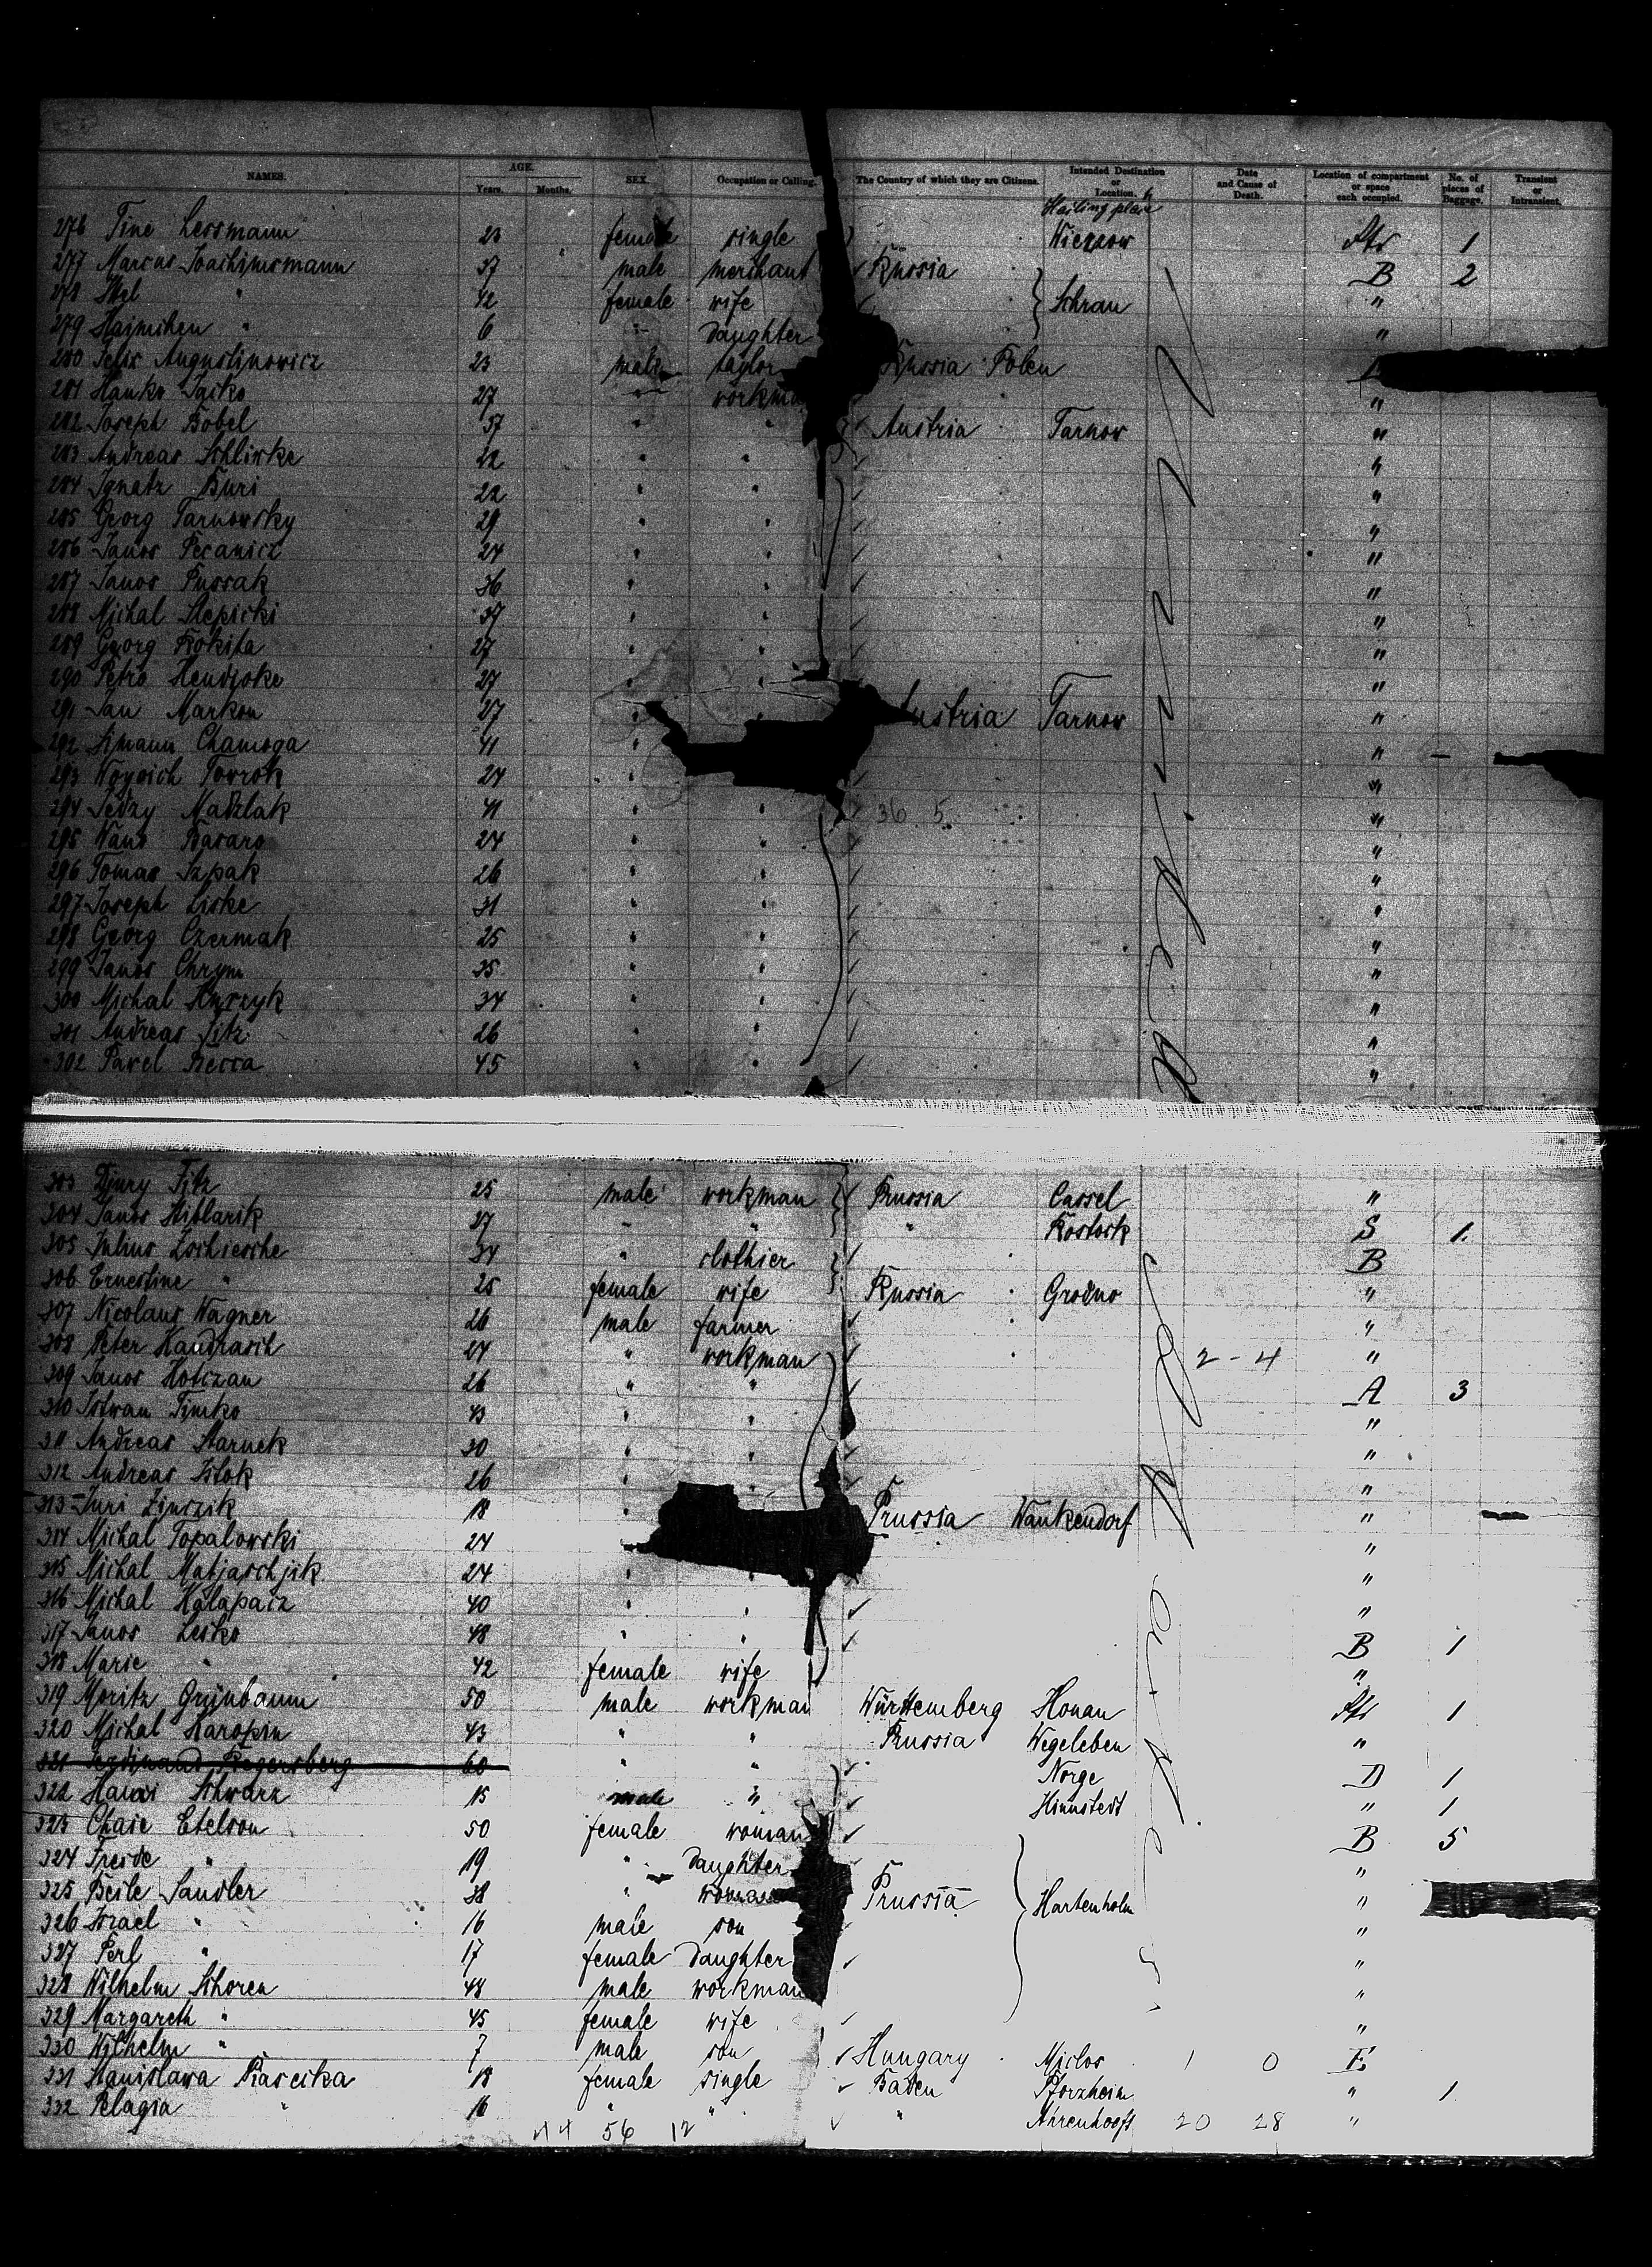 NAMES. AGE. Years. Months. SEX. Occupation or Calling. The Country of which they are Citizens. Intended Destination or Location. Date and Cause of Death. Location of compartment or space each occupied. No. of pieces of Baggage. Transient or Intransient.
Hailing place
276 Tine Lessmann 23 female single Wierzow Str 1
277 Marcus Joachimsmann 37 male merchant Russia B 2
278 " 42 female wife Schrau "
279 " 6 " Daughter "
280 Felix Augustinowicz 23 male taylor Russia Polen
281 Hanko 27 " workma "
282 Joseph Bobel 37 " " Austria Tarnow "
283 Andreas Schlirke 22 " " "
284 Ignatz Buri 22 " " "
285 Georg Tarnowsky 29 " " "
286 Janos Pecanicz 24 " " "
287 Janos Pussak 36 " " "
288 Michal Slepicki 37 " " "
289 Georg Kokita 27 " " "
290 Petro 27 " " "
291 Jan Markon 27 " " Austria Tarnow "
292 Simann Chamoga 41 " "
293 24 " "
294 Jedzy Madzlak 41 " " 36 5 "
295 24 " " "
296 Tomas Szpak 26 " " "
297 Joseph Liske 31 " " "
298 Georg Czermak 25 " " "
299 Janos Chrym 35 " " "
300 Michal 34 " " "
301 Andreas Fitz 26 " " "
302 Pavel Becca 45 " " "
303 Fitz 25 male workman Prussia Cassel "
304 Janos 27 " " " Rostock S 1.
305 Julius Zschiesche 34 " clothier B
306 Ernestine " 25 female wife Russia Grodno "
307 Nicolaus Wagner 26 male farmer "
308 Peter Handrasch 24 " workman 2 - 4 "
309 Janos Hotczan 26 " " A 3
310 Istvan Timko 43 " " "
311 Andreas Starnek 30 " " "
312 Andreas Istok 26 " " "
313 Juri 18 " Prussia Wankendorf "
314 Michal Topalowski 24 "
315 Michal Matjaschjik 24 " " "
316 Michal Kalapacz 40 " " "
317 Janos Lesko 48 " " B 1
318 Marie " 42 female wife "
319 Moritz Grünbaum 50 male workman Württemberg Honau Str 1
320 Michal 43 " " Prussia Wegeleben "
321 Ferdinand Regensberg 60 " " Norge D 1
322 Schwarz 15 male " Hinnstedt " 1
323 Chaie Etelson 50 female woman B 5
324 Freide " 19 " Daughter "
325 Beile Sandler 38 " woman Prussia Hartenholm "
326 Israel " 16 male son "
327 Perl " 17 female Daughter "
328 Wilhelm Schoren 48 male workman "
329 Margareth " 45 female wife "
330 Wilhelm " 7 male son Hungary Miclos 1 0 E
331 Stanislawa 18 female single Baden Pforzheim " 1.
332 Pelagia " 16 " " " Ahrenhooft 20 28 "
44 56 12